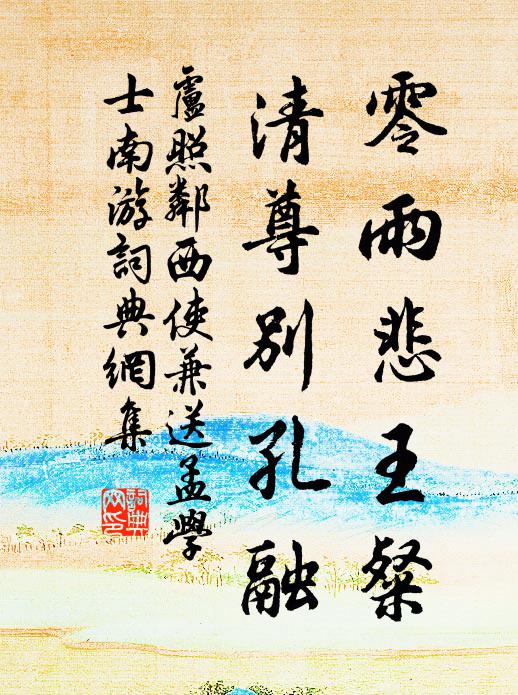 零雨悲王粲
清尊別孔融
盧照鄰西使兼送孟學
士南游詞典網集